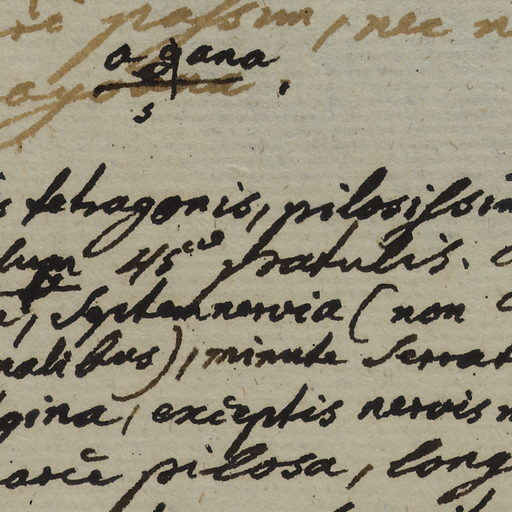 passim, nec n
agana
s
tetragonis, pilosissim
4/5 
septemnervia (non
nalibus), minute serrat
gina, exceptis nervis n
pilosa, long